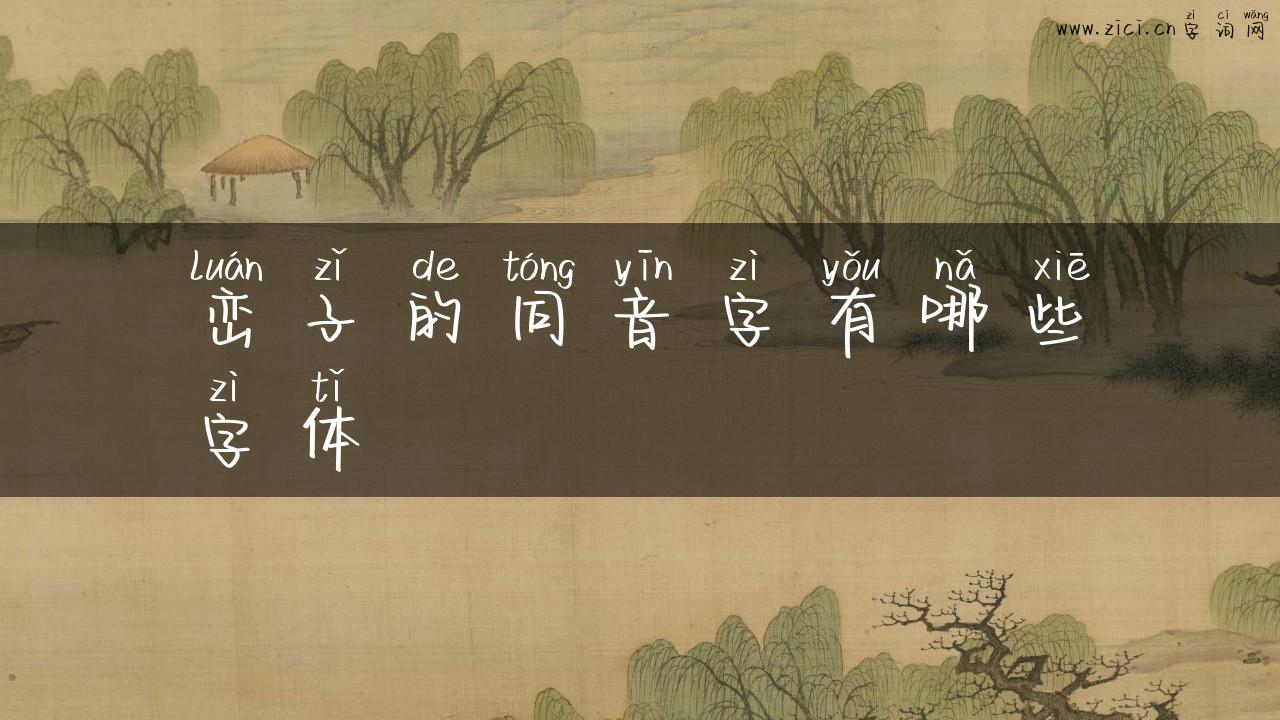 zì cí wǎng
www.zici.cn字词网
luán zǐ de tóng yīn zì yǒu nǎ xiē
峦子的同音字有哪些
zì tǐ
字体